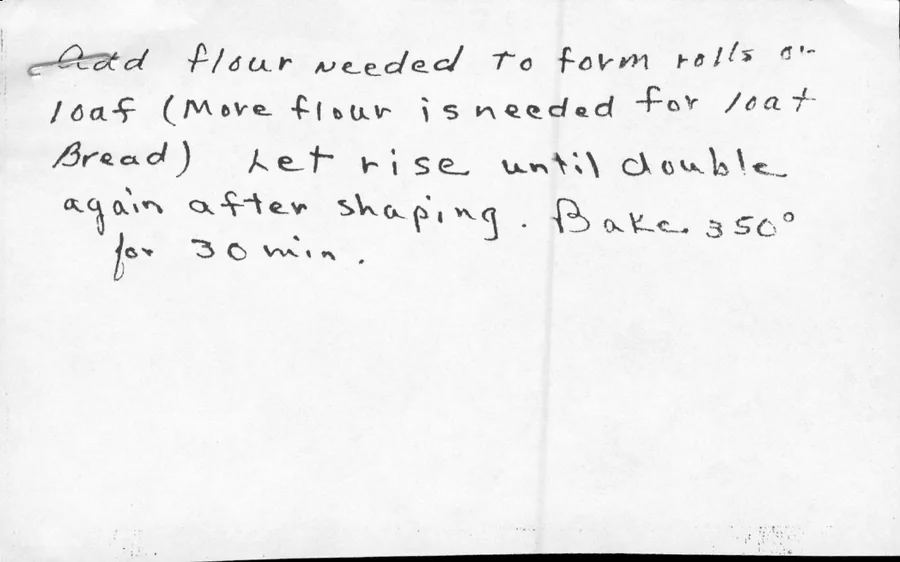 Add flour needed to form rolls or
loaf (More flour is needed for loaf
Bread) Let rise until double
again after shaping. Bake 350°
for 30 min.